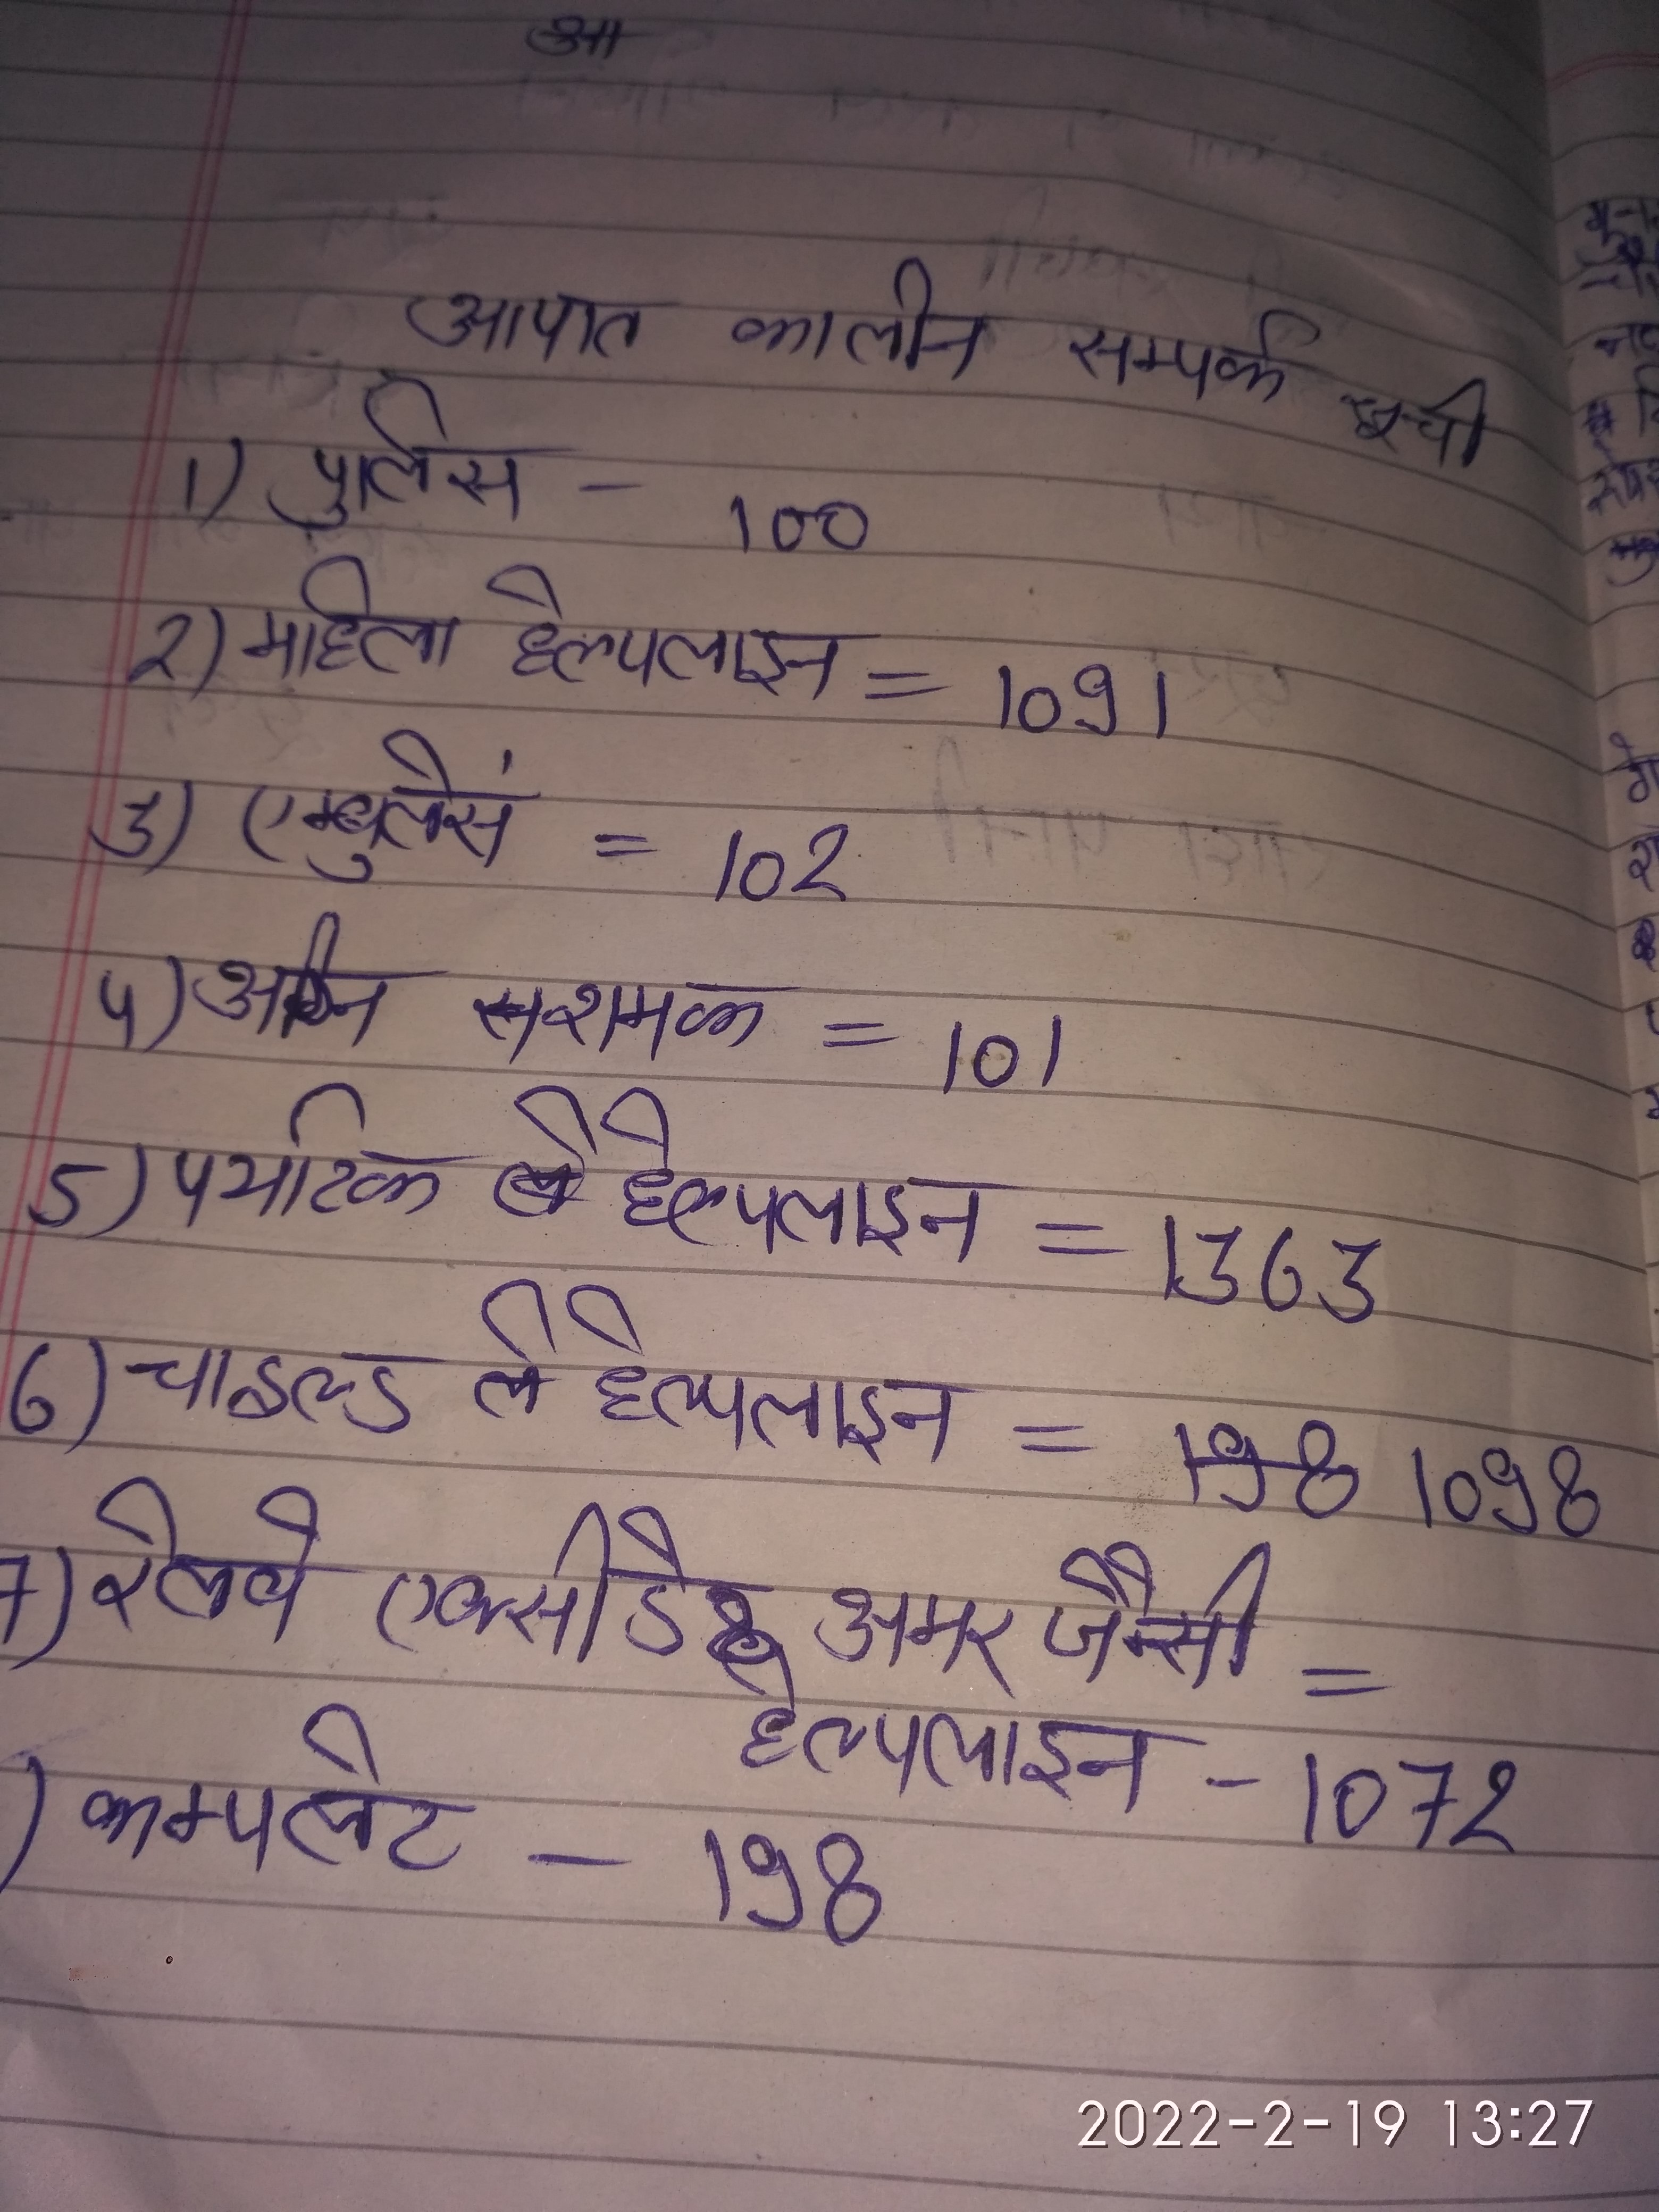 आ
आपात कालीन सम्पर्क सूची
1) पुलिस - 100
2) महिला हेल्पलाइन = 1091
3) एम्बुलेसं = 102
4) अग्नि सशमक = 101
5) पर्यटिक हेल्पलाइन = 1363
6) चाइल्ड ले हेल्पलाइन = 198 1098
7) रेलवे एक्सीडे अमर जैन्सी =
हेल्पलाइन - 1072
) कम्पलेट - 198
2022-2-19 13:27